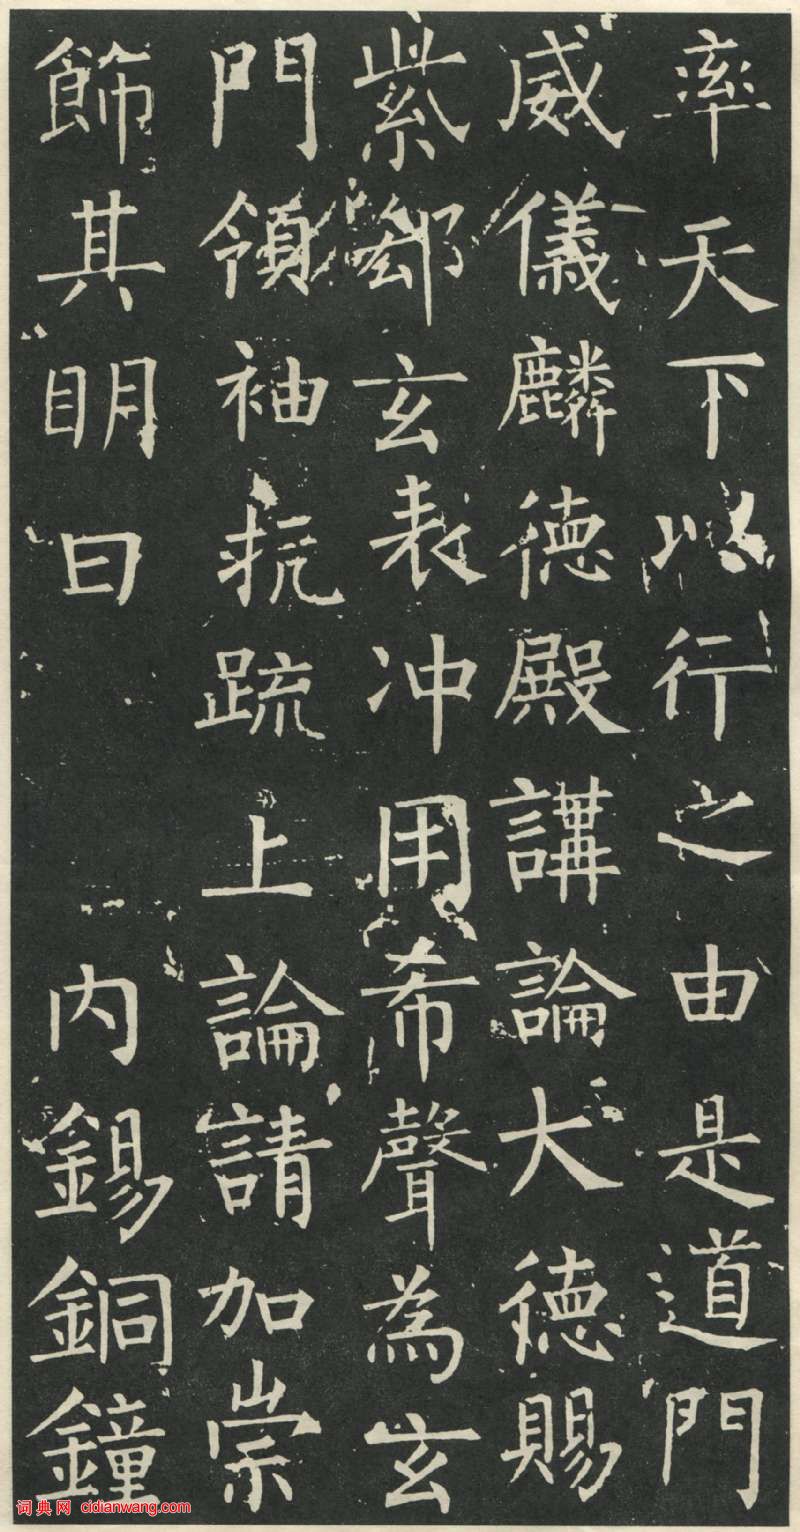 率天下以行之由是道門
威儀麟德殿講論大德賜
紫郄玄表冲用希聲為玄
門領袖抗疏上論請加崇
飾其明日 内錫銅鐘
词典网 cidianwang.com